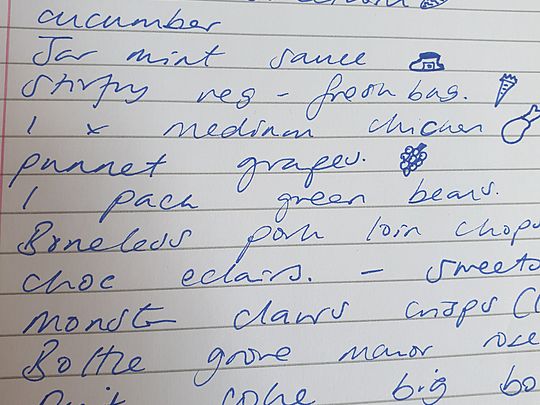 cucumber
Jar mint sauce
Stirfry veg - fresh bag.
1 x medium chicken
punnet grapes.
1 pack green beans.
Boneless pork loin chops
choc eclairs. - sweets
Monster claws crisps (
Bottle grove manor rose
coke big bo